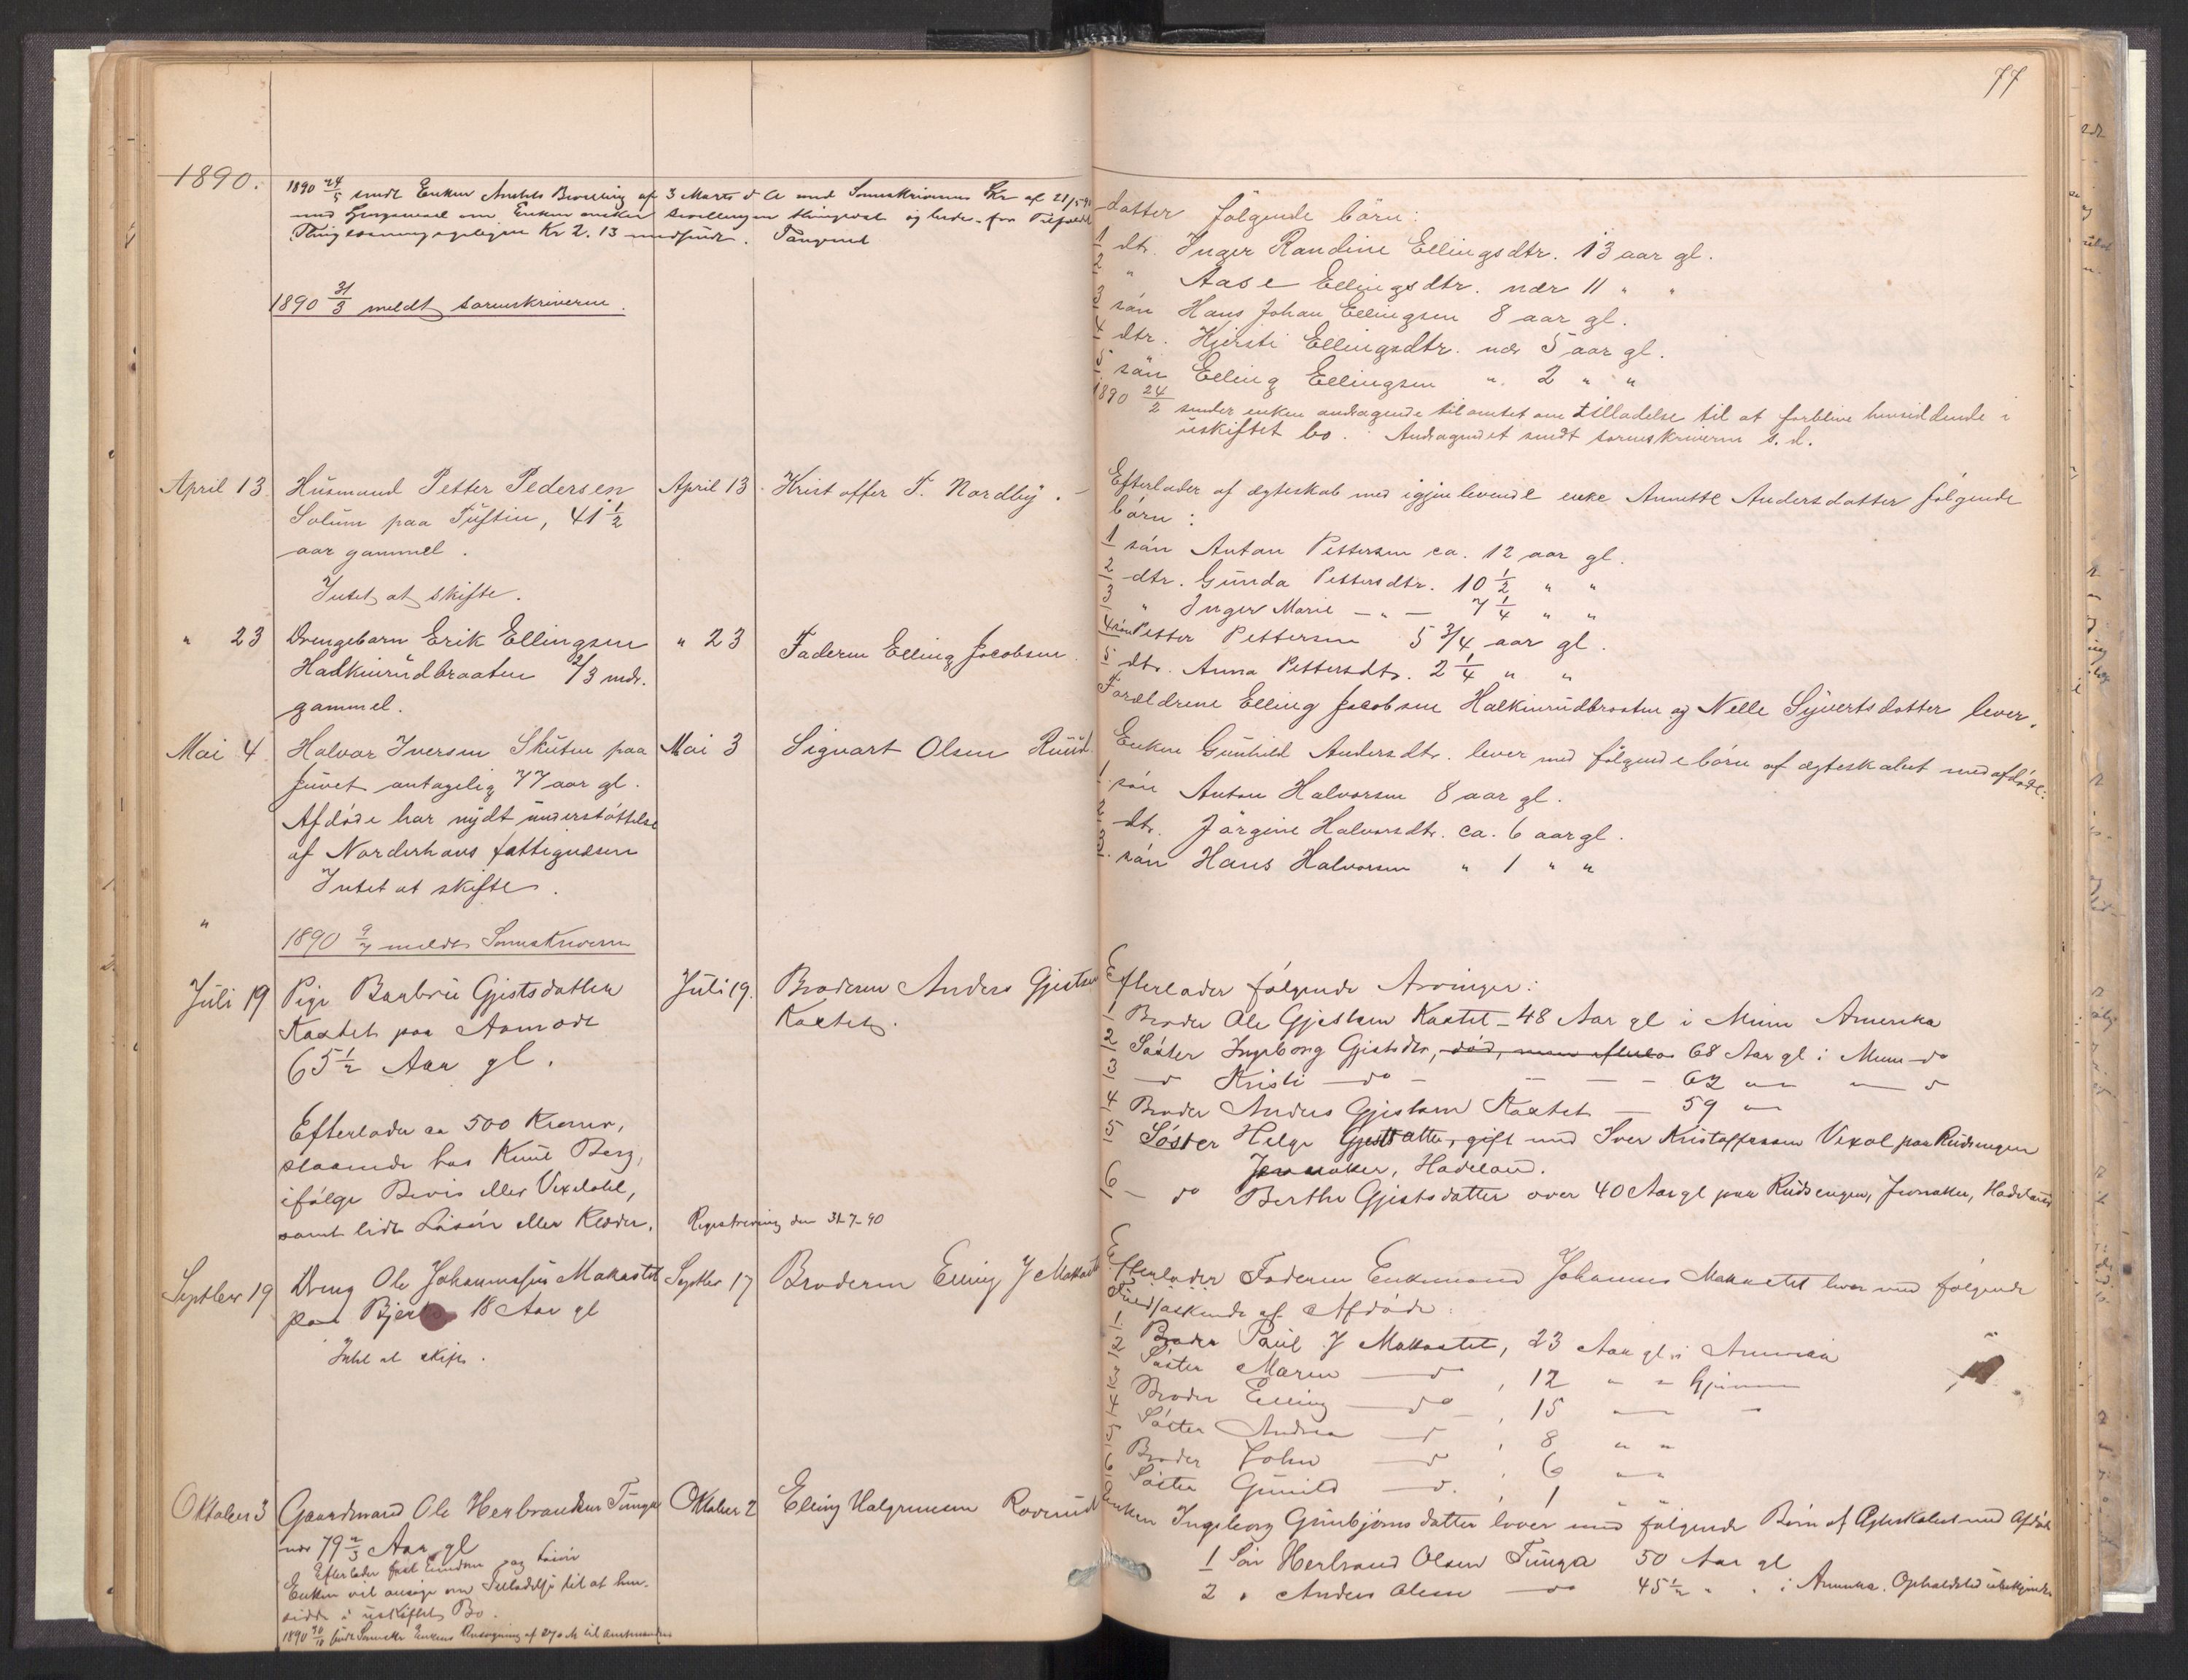 77
1890.
1890 24/5 sendt Enken Amtets Bevilling af 3 Marts d A med Sorenskriverens Skr af 21/5 90
med om Enken ønsker bevillingen thinglæst og beder for Tilfælde
Thinglæsningsgebyret Kr 2.13 indsendt.
1890 31/3 meldt sorenskriveren.
datter følgende børn:
1 dtr. Inger Randine Ellingsdtr. 13 aar gl.
2 " Aase Ellingsdtr. nær 11 " "
3 søn Hans Johan Ellingsen 8 aar gl.
4 dtr. Kjersti Ellingsdtr. nær 5 aar gl.
5 søn Elling Ellingsen " 2 " "
1890 24/2 sender enken andragende til amtet om tilladelse til at forblive hensiddende i
uskiftet bo. Andragendet sendt sorenskriveren s.d.
April 13. Husmand Petter Pedersen
Solum paa Tuftin, 41 1/2
aar gammel.
Intet at skifte.
April 13. Kristoffer T. Nordby.
Efterlader af ægteskab med igjenlevende enke Annette Andersdatter følgende
børn:
1 søn Anton Pettersen ca. 12 aar gl.
2 dtr. Gunda Pettersdtr. 10 1/2 " "
3 " Inger Marie — " — 7 1/4 " "
4 søn Petter Pettersen 5 3/4 aar gl.
5 dtr. Anna Pettersdtr. 2 1/4 " "
" 23 Drengebarn Erik Ellingsen
Halkinrudbraaten 2/3 mdr.
gammel.
" 23 Faderen Elling Jacobsen.
Forældrene Elling Jacobsen Halkinrudbraaten og Nelle Syvertsdatter lever.
Mai 4. Halvor Iversen Skuten paa
Juvet antagelig 77 aar gl.
Afdøde har nydt understøttelse
af Norderhovs fattigvæsen
Intet at skifte.
Mai 3 Sigvart Olsen Ruud.
Enken Gunhild Andersdtr. lever med følgende børn af ægteskabet med afdøde:
1. søn Anton Halvorsen 8 aar gl.
2. dtr. Jørgine Halvorsdtr. ca. 6 aar gl.
3. søn Hans Halvorsen " 1 " "
"
1890 9/7 meldt Sorenskriveren
Juli 19 Pige Barbru Gjestsdatter
Kastet paa Aamodt
65 1/2 Aar gl.
Efterlader ca 500 Kroner,
staaende hos Knut Berg,
ifølge Bevis eller Vexelobl,
samt lidt Løsøre eller Klæder.
Juli 19. Broderen Anders Gjestsen
Kastet.
Registrering den 31-7-90
Efterlader følgende Arvinger:
1 Broder Ole Gjestsen Kastet - 48 Aar gl i Minn Amerika
2 Søster Ingeborg Gjestsdtr, død, men efterla 68 Aar gl i Minn do
3 — do Kristi — do — — — 62 — — do
4 Broder Anders Gjestsen Kastet — 59 —
5 Søster Helge Gjestsdatter, gift med Iver Kristoffersen Vexal paa Rudsengen
Jevnaker, Hadeland.
6 — do Berthe Gjestsdatter over 40 Aar gl paa Rudsengen, Jevnaker, Hadeland
Septber 19 Dreng Ole Johannessen Makastet
paa 18 Aar gl
Intet at skifte.
Septbr 17 Broderen Elling J Makastet
Efterlader Faderen Enkemand Johannes Makastet lever med følgende
Fuldsøskende af Afdøde:
1. Broder Paul J Makastet, 23 Aar gl i Amerika
2 Søster Maren — do , 12 " " hjemme
3 Broder Elling — do , 15 — "
4 Søster Andrea — do , 8 " "
5 Broder John — do , 6 —
6 Søster Gunild — do , 1
Oktober 3 Gaardmand Ole Herbrandsen Tunga
nær 79 2/3 Aar gl
Efterlader fast Eiendom og Løsøre
Enken vil ansøge om Tilladelse til at hen-
sidde i uskiftet Bo.
1890 30/10 sendt Sorenskr Enkens Ansøgning af 27 ds til Amtmanden
Oktober 2 Elling Halgrimsen Roverud
Enken Ingeborg Gunbjørnsdatter lever med følgende Børn af Ægteskabet med Afdøde
1 Søn Herbrand Olsen Tunga 50 Aar gl
2 " Anders Olsen — do 45 1/2 " " i Amerika. Opholdsted ubekjendt